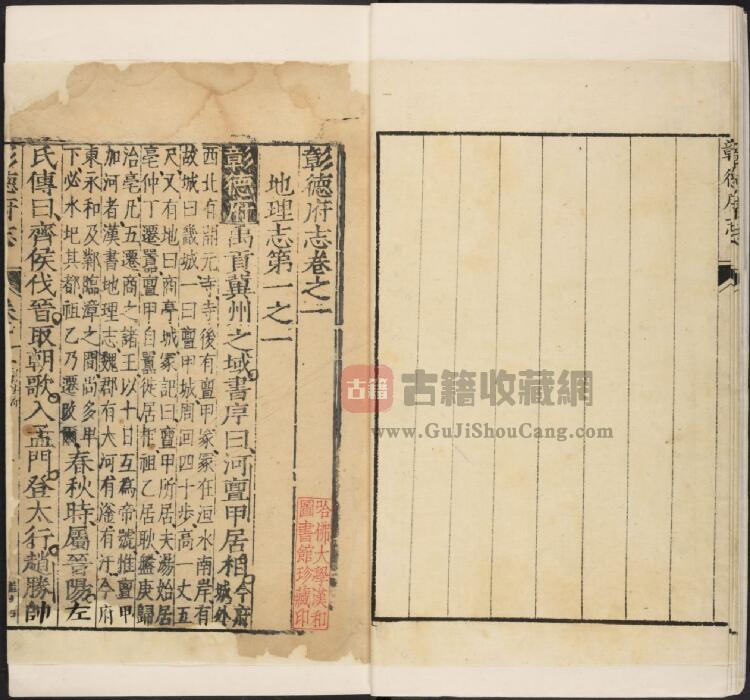 彰德府志
彰德府志卷之一
地理志第一之一
彰德府禹貢冀州之域書序曰河亶甲居相今府城外
西北有開元寺寺後有亶甲冢冢在洹水南岸有
故城曰畿城一曰亶甲城周回四十步高一丈五
尺又有地曰商亭城冢記曰亶甲所居夫湯始居
亳仲丁遷囂亶甲自囂徙居相祖乙居耿盤庚歸
治亳凡五遷商之諸王以十日互爲帝號惟亶甲
加河者漢書地理志魏郡有大河有滏有汙今府
東永和及鄴臨漳之間尚多卑
下必水圮其都祖乙乃遷陂爾春秋時屬晉陽左
氏傳曰齊侯伐晉取朝歌入孟門登太行趙勝帥
彰德府志
哈佛大學漢和
圖書館珍藏印
古籍
古籍收藏網
www.GuJiShouCang.com